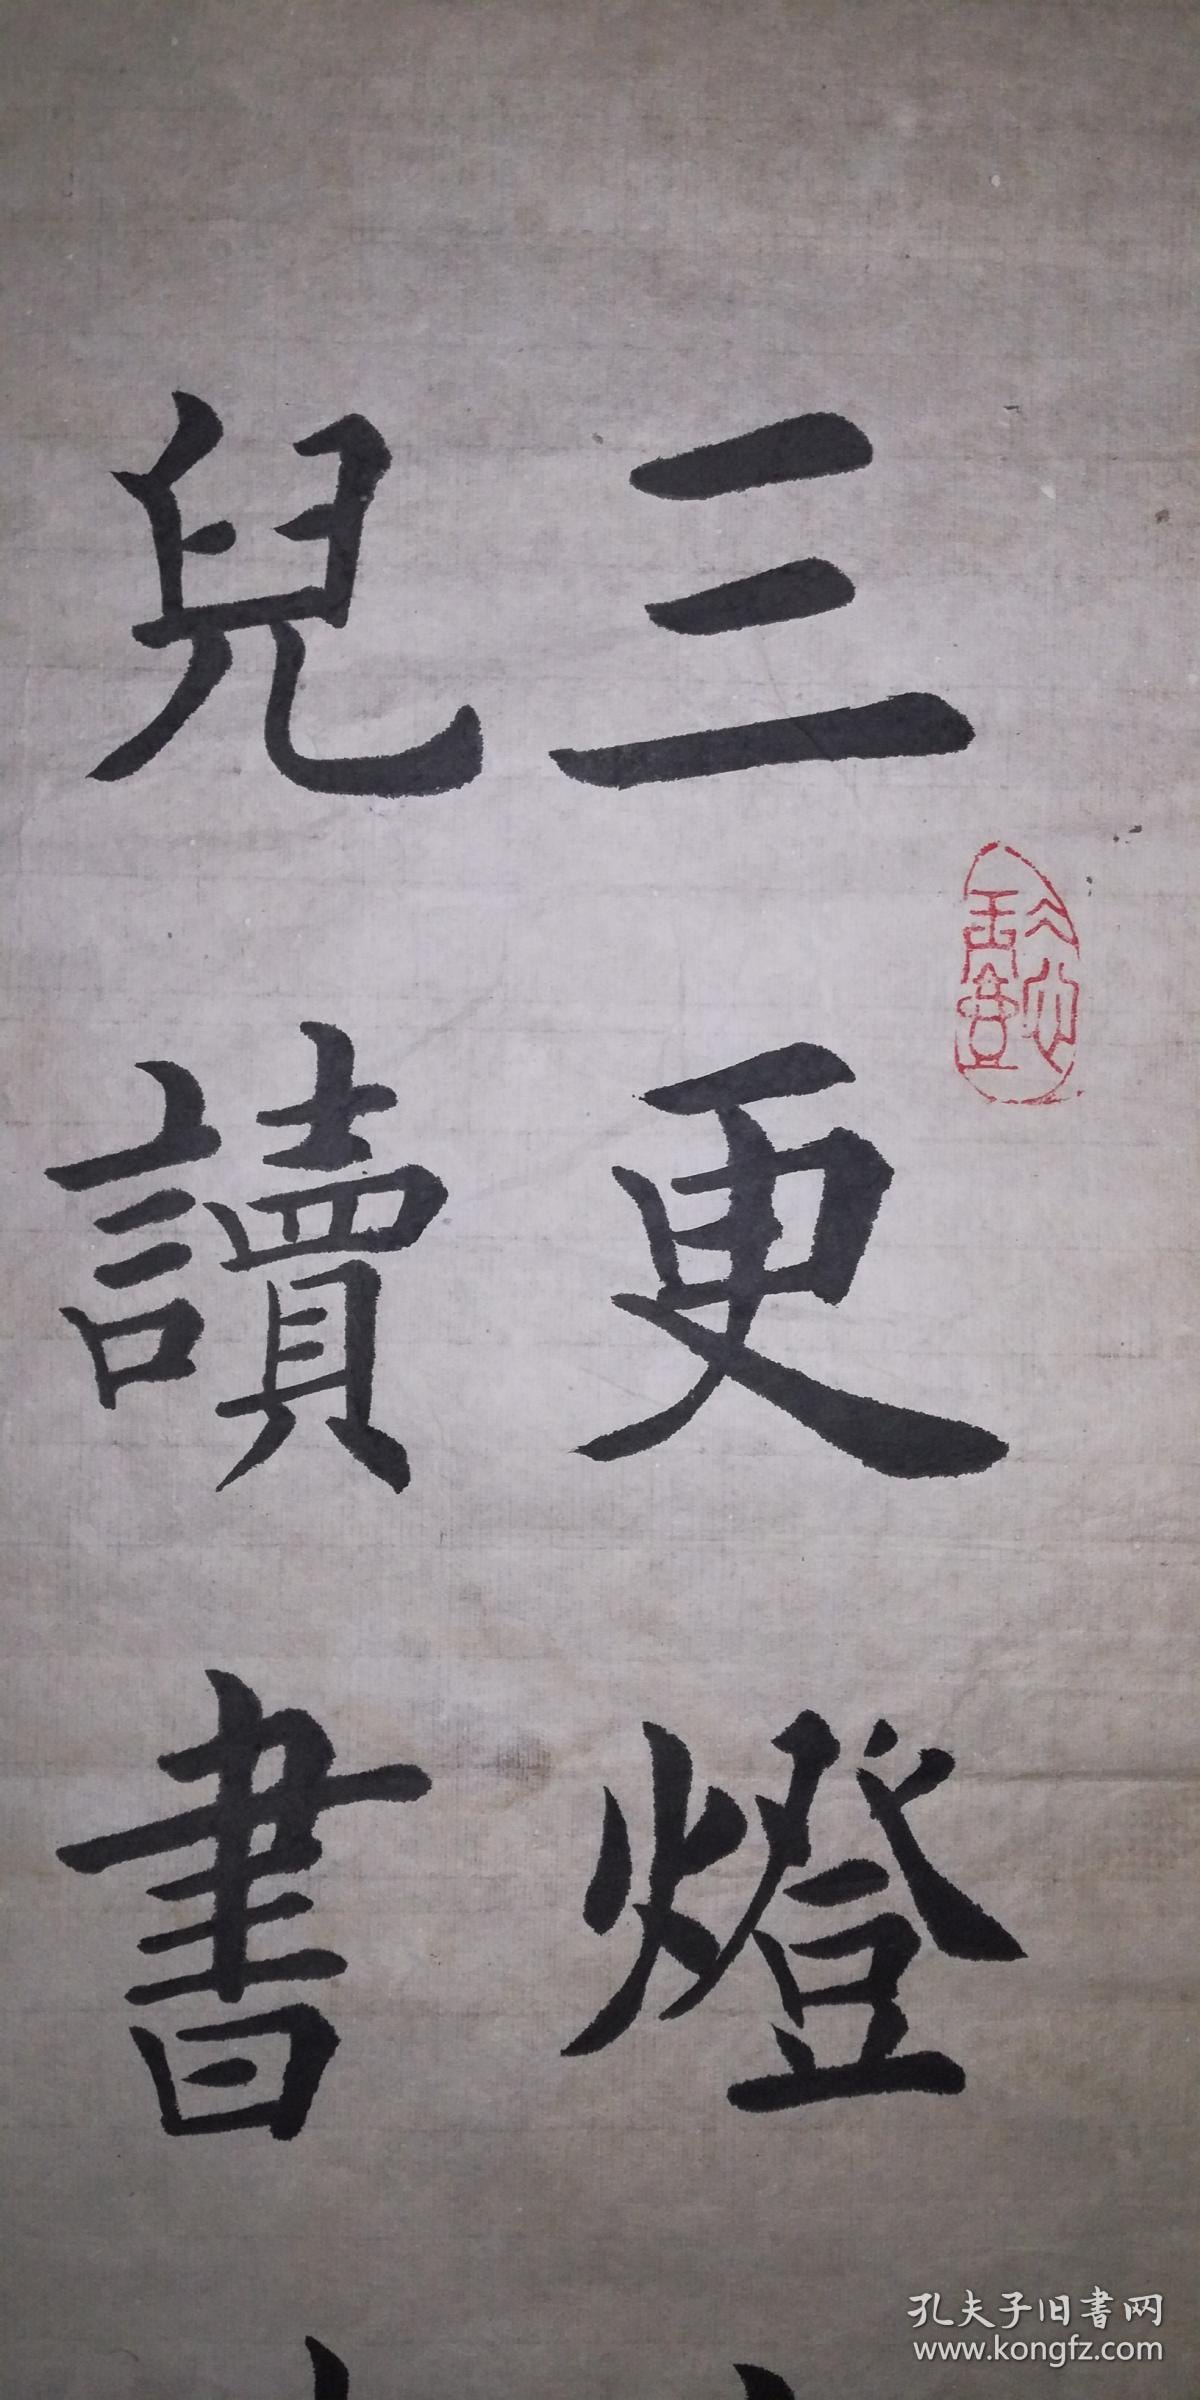 三更燈
兒讀書
孔夫子旧书网
www.kongfz.com